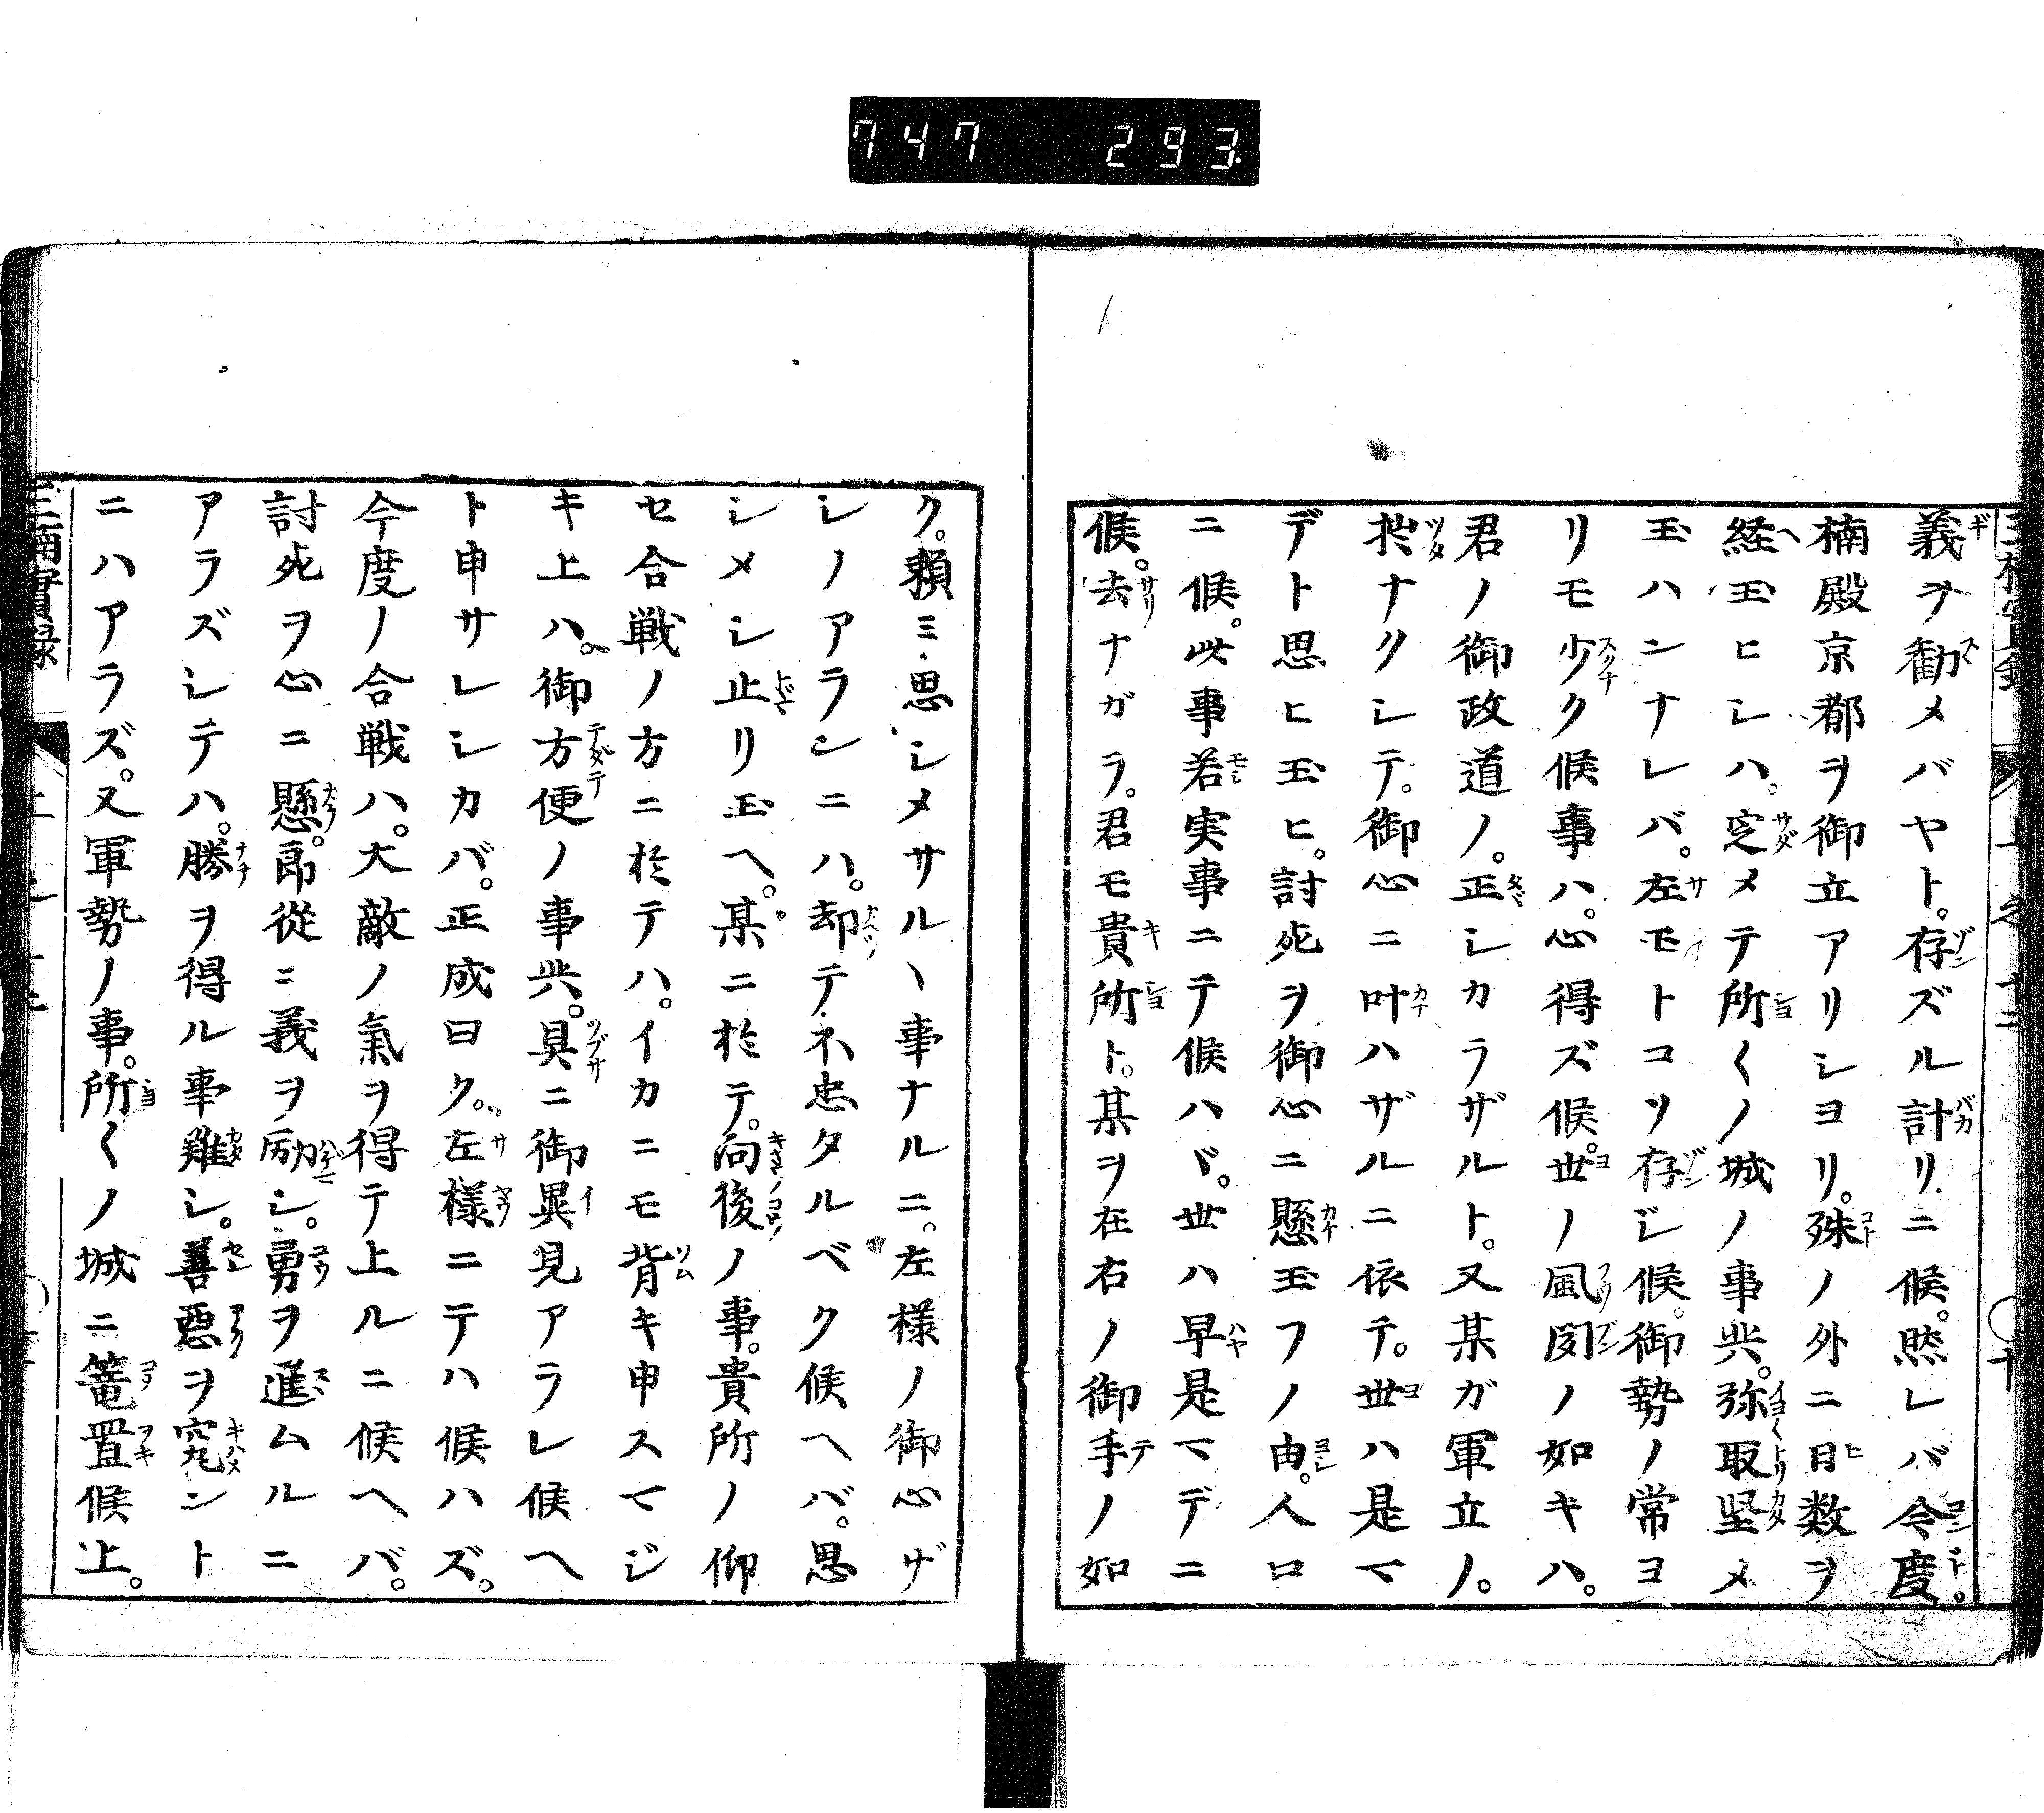 747 293
義ヲ勸メバヤト。存ズル計リニ候。然レバ今度。
楠殿京都ヲ御立アリシヨリ。殊ノ外ニ日数ヲ
経玉ヒシハ。定メテ所〱ノ城ノ事共。弥取堅メ
玉ハンナレバ。左モトコソ存ジ候。御勢ノ常ヨ
リモ少ク候事ハ。心得ズ候。世ノ風聞ノ如キハ。
君ノ御政道ノ。正シカラザルト。又某ガ軍立ノ。
拙ナクシテ。御心ニ叶ハザルニ依テ。世ハ是マ
デト思ヒ玉ヒ。討死ヲ御心ニ懸玉フノ由。人口
ニ候。此事若実事ニテ候ハヾ。世ハ早是マデニ
候。去ナガラ。君モ貴所ト。某ヲ在右ノ御手ノ如
ク。頼ミ思シメサルヽ事ナルニ。左様ノ御心ザ
シノアランニハ。却テ不忠タルベク候ヘバ。思
シメシ止リ玉ヘ。某ニ於テ。向後ノ事。貴所ノ仰
セ合戦ノ方ニ於テハ。イカニモ背キ申スマジ
キ上ハ。御方便ノ事共。具ニ御異見アラレ候ヘ
ト申サレシカバ。正成曰ク。左様ニテハ候ハズ。
今度ノ合戦ハ。大敵ノ氣ヲ得テ上ルニ候ヘバ。
討死ヲ心ニ懸。郎從ニ義ヲ励シ。勇ヲ進ムルニ
アラズシテハ。勝ヲ得ル事難シ。善惡ヲ究ント
ニハアラズ。又軍勢ノ事。所〱ノ城ニ篭置候上。
三楠實録